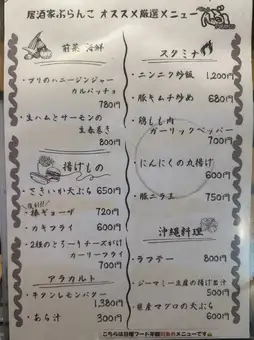 居酒家ぶらんこ オススメ厳選メニュー
前菜 海鮮
・ブリのハニージンジャー
カルパッチョ
780円
・生ハムとサーモンの
生春巻き
800円
揚げもの
・さきいか天ぷら 650円
復刻!!
・棒ギョーザ 720円
・カキフライ 600円
・2種のとろ〜りチーズがけ
カーリーフライ
700円
アラカルト
・牛タンレモンバター
1,380円
・あら汁 300円
スタミナ
・ニンニク炒飯 1,200円
・豚キムチ炒め 680円
・鶏もも肉
ガーリックペッパー
700円
・にんにくの丸揚げ
600円
・豚ニラ玉 750円
沖縄料理
・ラフテー 800円
・ジーマミー豆腐の揚げ出汁
500円
・県産マグロの天ぷら
600円
こちらは日曜フード半額対象外メニューです